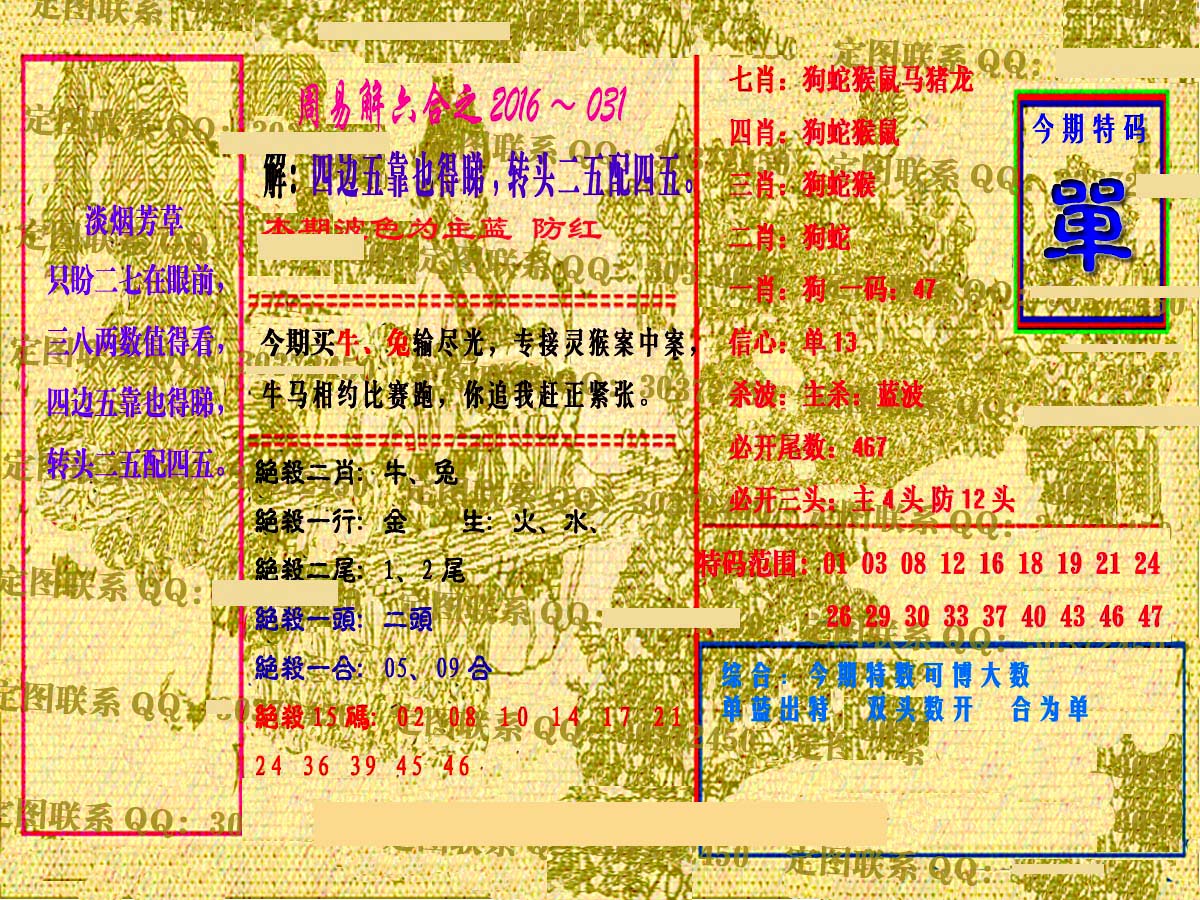 淡烟芳草
只盼二七在眼前，
三八两数值得看，
四边五靠也得睇，
转头二五配四五。
周易解六合之 2016～031
解：四边五靠也得睇，转头二五配四五。
本期波色为主蓝 防红
今期买牛、兔输尽光，专接灵猴案中案，
牛马相约比赛跑，你追我赶正紧张。
絕殺二肖：牛、兔
絕殺一行：金 生：火、水、
絕殺二尾：1、2尾
絕殺一頭：二頭
絕殺一合：05、09合
絕殺15碼：02 08 10 14 17 21
24 36 39 45 46
七肖：狗蛇猴鼠马猪龙
四肖：狗蛇猴鼠
三肖：狗蛇猴
二肖：狗蛇
一肖：狗 一码：47
信心：单13
杀波：主杀：蓝波
必开尾数：467
必开三头：主4头防12头
今期特码
單
特码范围：01 03 08 12 16 18 19 21 24
26 29 30 33 37 40 43 46 47
综合：今期特数可博大数
单蓝出特 双头数开 合为单
定图联系 QQ：